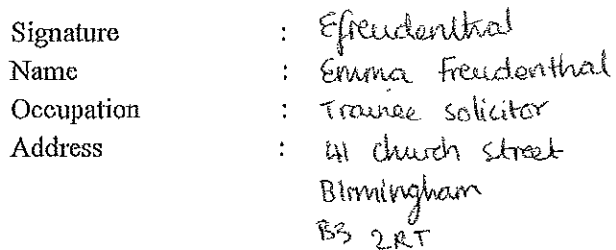 Signature : Efreudenthal
Name : Emma Freudenthal
Occupation : Trainee Solicitor
Address : 41 church street
Birmingham
B3 2RT